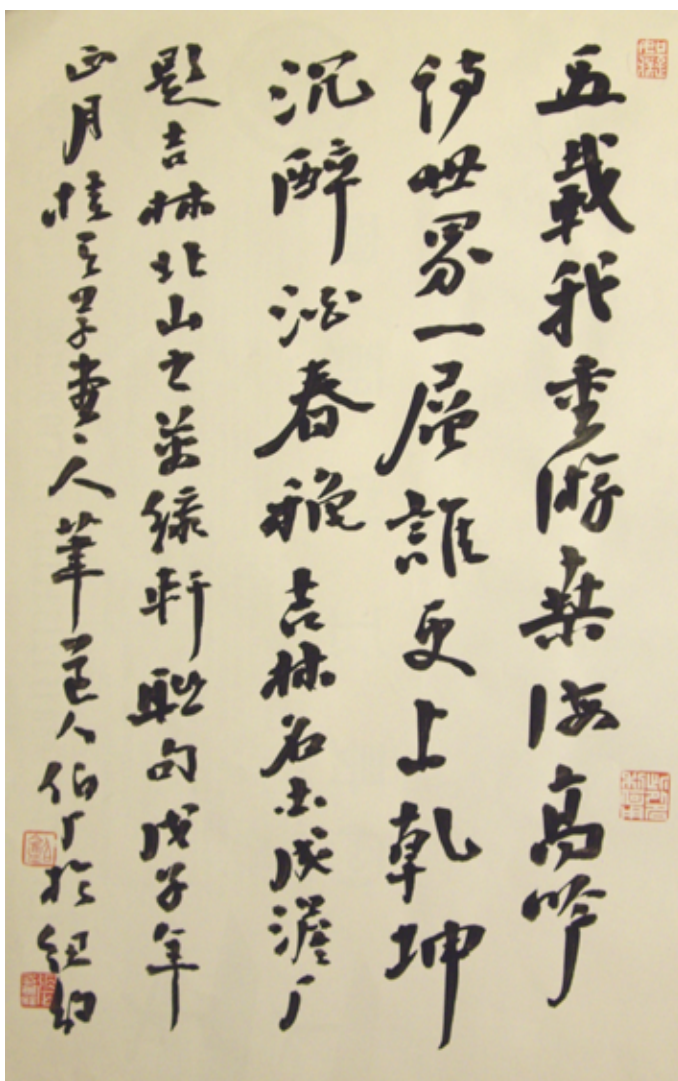 五載我重游桑海高吟
詩世界一層誰更上乾坤
沉醉酒春穐吉林名士成澹厂
題吉林北山之萬綠軒聯句戊子年
正月堂人筆人伯厂於紐約